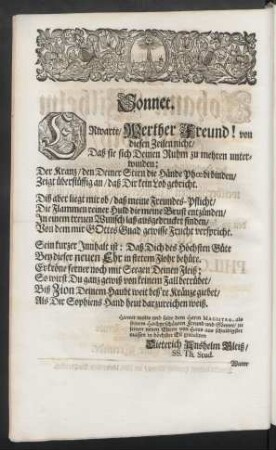 Sonnet.
ERwarte/ Werther Freund! von
diesen Zeilen nicht/
Daß sie sich Deinen Ruhm zu mehren unter-
winden;
Der Krantz/ den Deiner Stirn die Hände Phœbi binden/
Zeigt überflüssig an/ daß Dir kein Lob gebricht.
Diß aber liegt mir ob/ daß meine Freundes-Pflicht/
Die Flammen reiner Huld die meine Brust entzünden/
In einem treuen Wunsch laß ausgedrucket finden/
Von dem mir GOttes Gnad gewisse Frucht verspricht.
Sein kurzer Innhalt ist: Daß Dich des Höchsten Güte
Bey dieser neuen Ehr in stetem Flohr behüte.
Er kröne ferner noch mit Seegen Deinen Fleiß:
So wirst Du ganz gewiß von keinem Fall betrübet/
Biß Zion Deinem Haubt weit beß're Kräntze giebet/
Als Dir Sophiens Hand heut darzureichen weiß.
Hiermit wolte und solte dem Herrn MAGISTRO, als
seinem Hochgeschätzten Freund und Gönner/ zu
seiner neuen Ehren von Hertzen aus schuldigster
massen in höchster Eil gratuliren
Dieterich Anshelm Bleiß/
SS. Th. Stud.
Wann